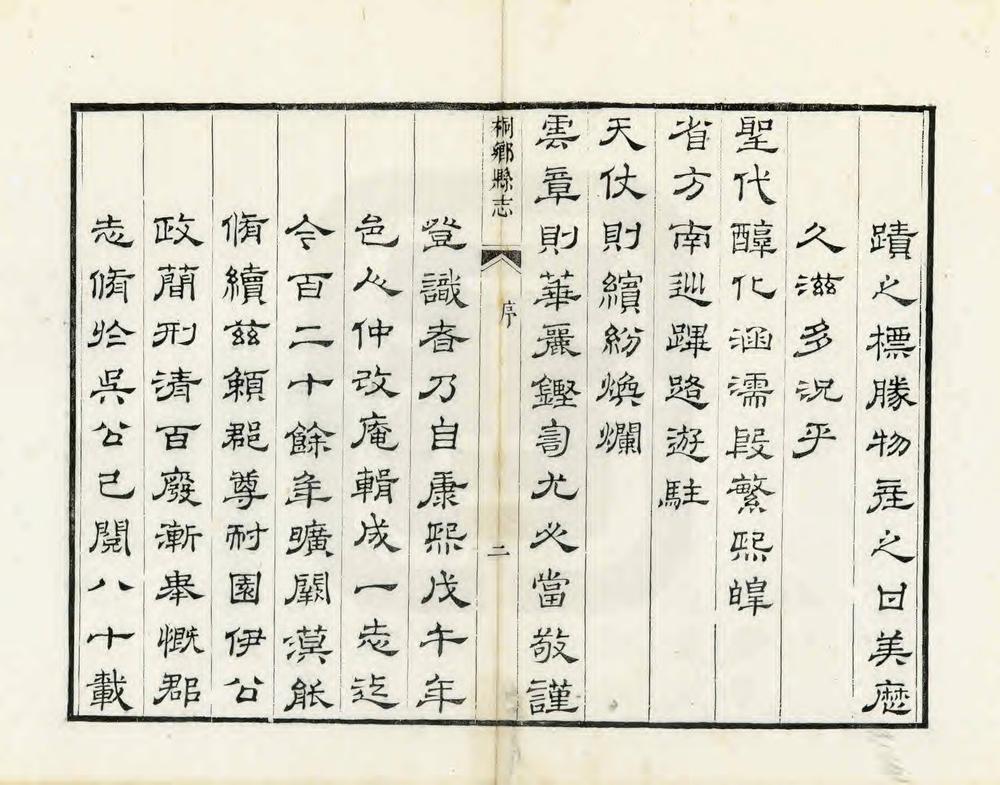 蹟之標勝物產之日美歷
久滋多況乎
聖代醇化涵濡段繁熙皥
省方南巡蹕路遊駐
天仗則繽紛煥爛
雲章則華麗鏗訇尤必當敬謹
桐鄉縣志
序
二
登識者乃自康熙戊午年
邑令仲改庵輯成一志迄
今百二十餘年曠闕莫能
脩續茲賴郡尊耐園伊公
政簡刑清百廢漸舉慨郡
志脩於吳公已閱八十載